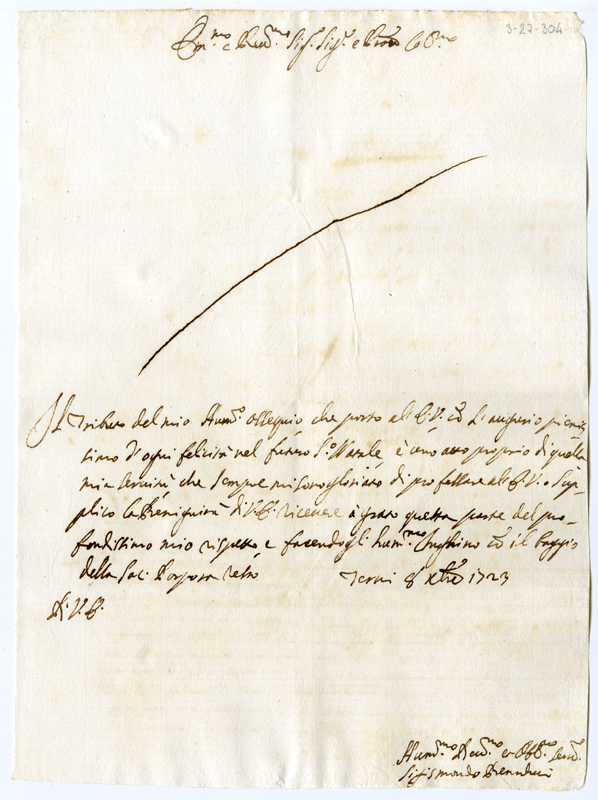 3-27-304
Em.mo e Rev.mo Sig.r Sig.r e Prone Col.mo
Il Tributo del mio Hum.o ossequio che porto all'E.V. co L'augurio pienis
simo d'ogni felicità nel futuro S.o Natale, è uno atto proprio di quella
mia servitù che sempre mi sono gloriato di professare all'E.V. o Sup-
plico la Benignità di V.E. ricevere a grado questa parte del pro-
fondissimo mio rispetto, e facendogli hum.mo Inghino co il baggio
della Sac. Porpora resto Terni 8 Xbre 1723
Di V.E.
Hum.mo Dev.mo et Obb.mo Serv.
Sigismondo